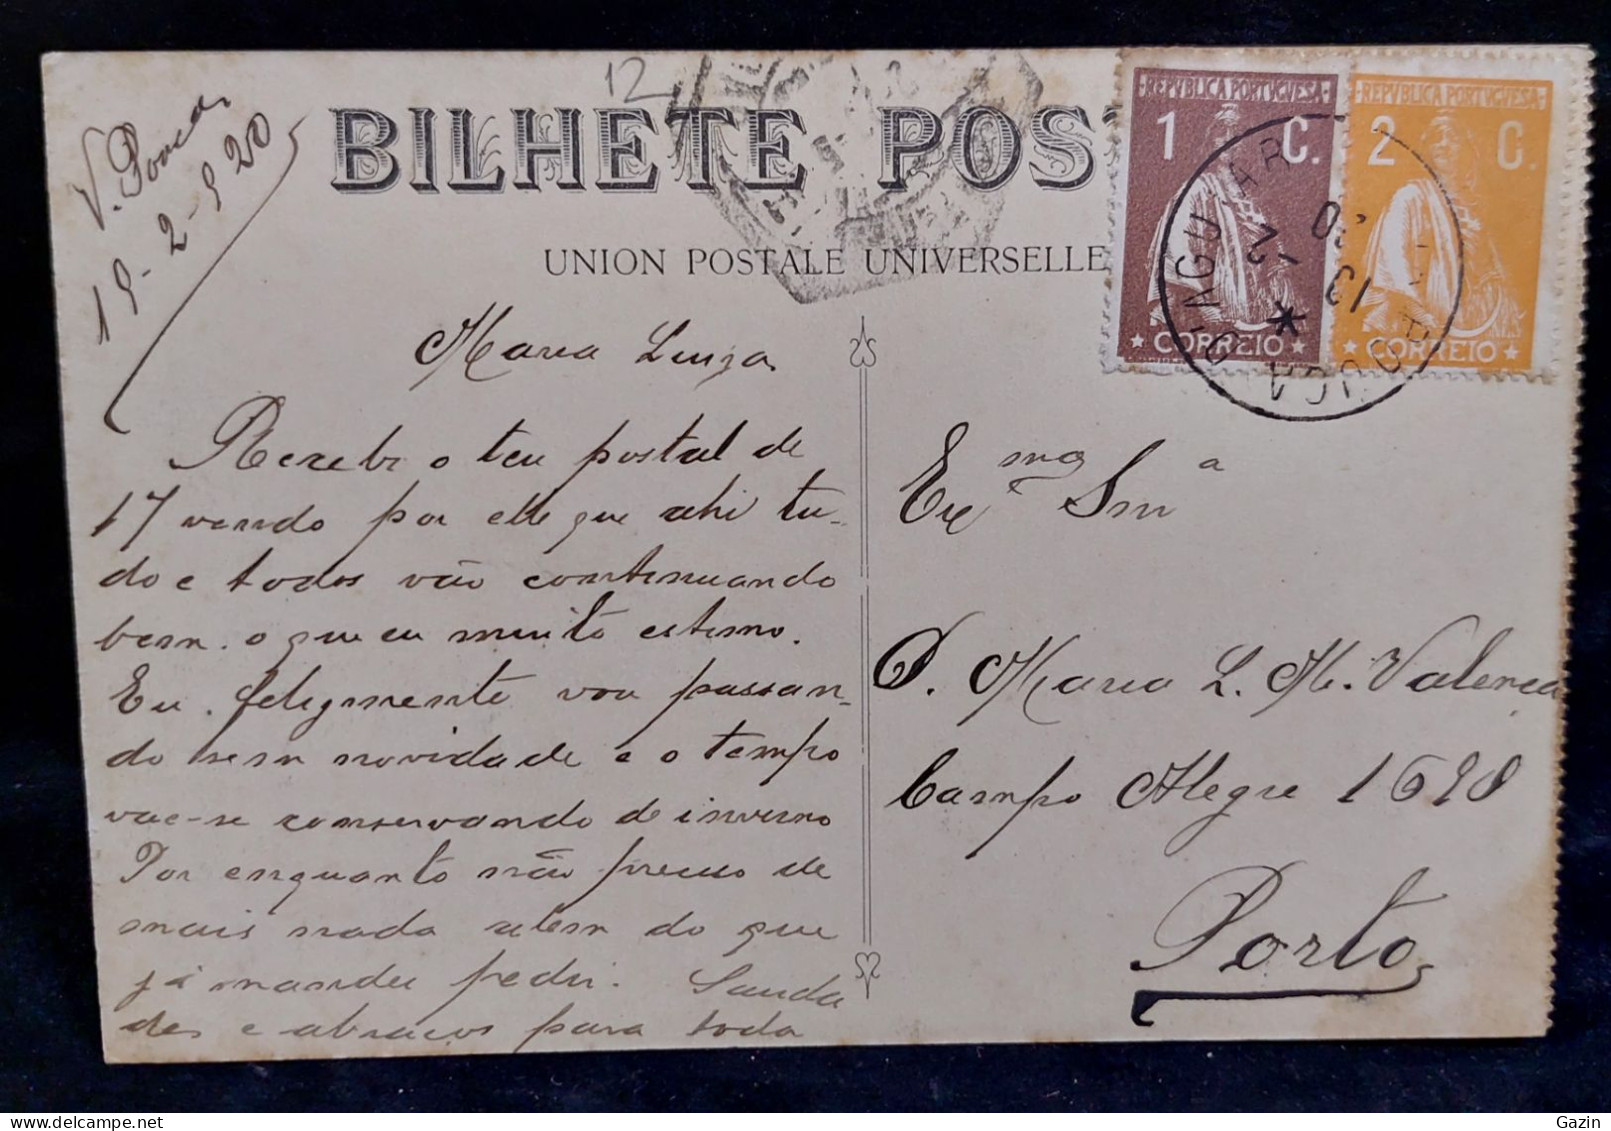 12
BILHETE POST
UNION POSTALE UNIVERSELLE
V. Pouca,
19-2-920
REPVBLICA PORTVGVESA
1 C.
CORREIO
REPVBLICA PORTVGVESA
2 C.
CORREIO
POUCA D'AGUIAR
Maria Luiza
Recebi o teu postal de
17 vendo por elle que ahi tu-
do e todos vão continuando
bem. o que eu muito estimo.
Eu felizmente vou passan-
do sem novidade e o tempo
vae-se conservando de inverno
Por enquanto não preciso de
mais nada alem do que
já mandei pedir. Sauda
des e abraços para toda
Exma Snra
D. Maria L. M. Valença
Campo Alegre 1698
Porto
Gazin